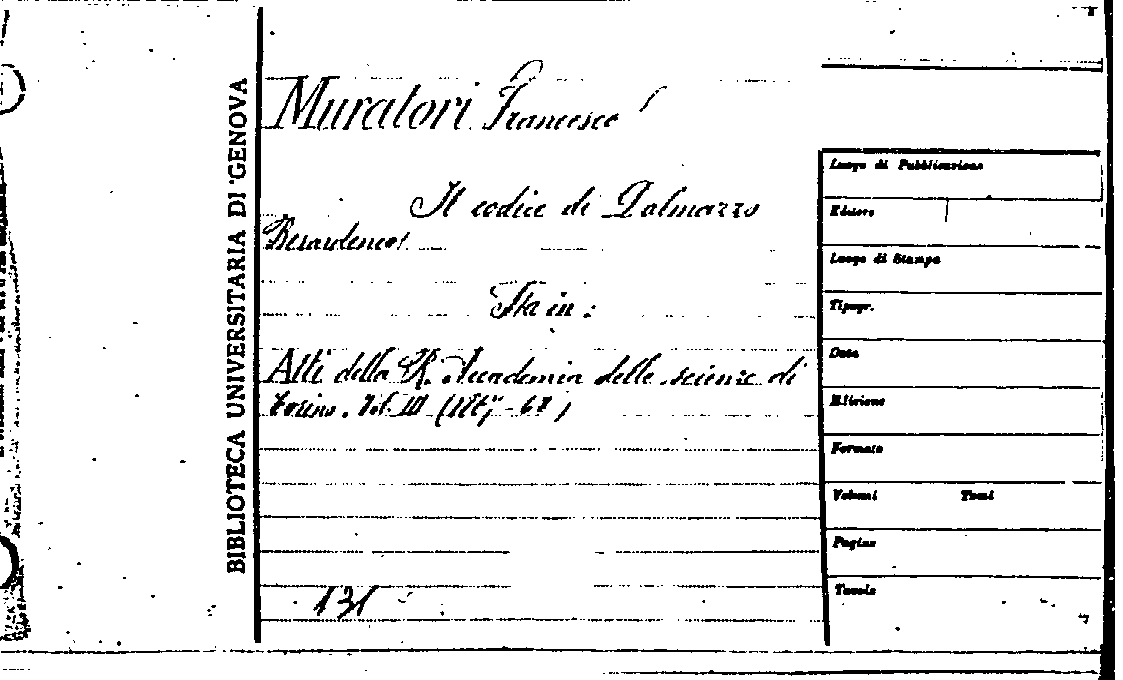 BIBLIOTECA UNIVERSITARIA DI GENOVA
Muratori Francesco
Il codice di Dalmazzo
Berardenco
Sta in:
Atti della R. Accademia delle scienze di
Torino. Vol. III (1867-68)
131
Luogo di Pubblicazione
Editore
Luogo di Stampa
Tipogr.
Data
Edizione
Formato
Volumi Tomi
Pagine
Tavole